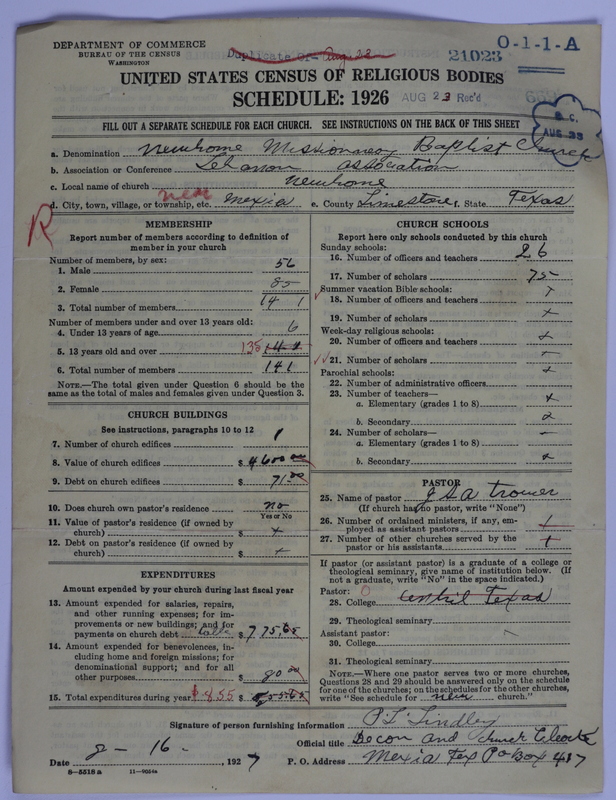 DEPARTMENT OF COMMERCE
BUREAU OF THE CENSUS
WASHINGTON
Duplicate Of- Aug 23
21023
O-1-1-A
UNITED STATES CENSUS OF RELIGIOUS BODIES
SCHEDULE: 1926
AUG 23 Rec'd
B.C.
AUG 23
FILL OUT A SEPARATE SCHEDULE FOR EACH CHURCH. SEE INSTRUCTIONS ON THE BACK OF THIS SHEET
a. Denomination Newhome Missionney Baptist Church
b. Association or Conference Lebanon association
c. Local name of church Newhome
d. City, town, village, or township, etc. near Mexia e. County Limestone f. State Texas
R
MEMBERSHIP
Report number of members according to definition of member in your church
Number of members, by sex:
1. Male 56
2. Female 85
3. Total number of members 141
Number of members under and over 13 years old:
4. Under 13 years of age 6
5. 13 years old and over 135 141
6. Total number of members 141
NOTE.—The total given under Question 6 should be the same as the total of males and females given under Question 3.
CHURCH BUILDINGS
See instructions, paragraphs 10 to 12
7. Number of church edifices 1
8. Value of church edifices $ 4600 00
9. Debt on church edifices $ 71.00
10. Does church own pastor's residence no
Yes or No
11. Value of pastor's residence (if owned by church) $ +
12. Debt on pastor's residence (if owned by church) $ +
EXPENDITURES
Amount expended by your church during last fiscal year
13. Amount expended for salaries, repairs, and other running expenses; for improvements or new buildings; and for payments on church debt $ 775.65
14. Amount expended for benevolences, including home and foreign missions; for denominational support; and for all other purposes $ 80 00
15. Total expenditures during year $855 $ 855.65
CHURCH SCHOOLS
Report here only schools conducted by this church
Sunday schools:
16. Number of officers and teachers 26
17. Number of scholars 75
Summer vacation Bible schools:
18. Number of officers and teachers +
19. Number of scholars +
Week-day religious schools:
20. Number of officers and teachers +
21. Number of scholars +
Parochial schools:
22. Number of administrative officers +
23. Number of teachers—
a. Elementary (grades 1 to 8) +
b. Secondary
24. Number of scholars—
a. Elementary (grades 1 to 8) —
b. Secondary
PASTOR
25. Name of pastor J A A Tromer
(If church has no pastor, write "None")
26. Number of ordained ministers, if any, employed as assistant pastors
27. Number of other churches served by the pastor or his assistants +
If pastor (or assistant pastor) is a graduate of a college or theological seminary, give name of institution below. (If not a graduate, write "No" in the space indicated.)
Pastor: 0
28. College Central Texas
29. Theological seminary
Assistant pastor:
30. College
31. Theological seminary
NOTE.—Where one pastor serves two or more churches, Questions 28 and 29 should be answered only on the schedule for one of the churches; on the schedules for the other churches, write "See schedule for new church."
Signature of person furnishing information P L Lindley
Official title Decon and church Clerk
Date 8 - 16 - 1927 P. O. Address Mexia Tex Po Box 417
8—5518a 11—9054a